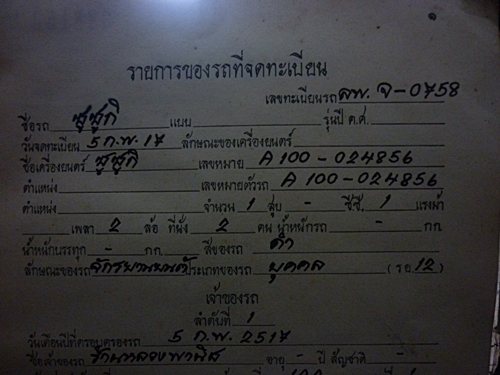 รายการของรถที่จดทะเบียน
เลขทะเบียนรถ สพ. จ-0758
ชื่อรถ ซูซูกิ แบบ รุ่นปี ค.ศ.
วันจดทะเบียน 5 ก.พ. 17 ลักษณะของเครื่องยนตร์
ชื่อเครื่องยนตร์ ซูซูกิ เลขหมาย A 100-024856
ตำแหน่ง เลขหมายตัวรถ A 100-024856
ตำแหน่ง จำนวน 1 สูบ - ซีซี. 1 แรงม้า
เพลา 2 ล้อ ที่นั่ง 2 คน น้ำหนักรถ - กก.
น้ำหนักบรรทุก - กก. สีของรถ ดำ
ลักษณะของรถ จักรยานยนต์ ประเภทของรถ บุคคล (รย 12)
เจ้าของรถ
ลำดับที่ 1
วันเดือนปีที่ครอบครองรถ 5 ก.พ. 2517
ชื่อเจ้าของรถ อายุ - ปี สัญชาติ -